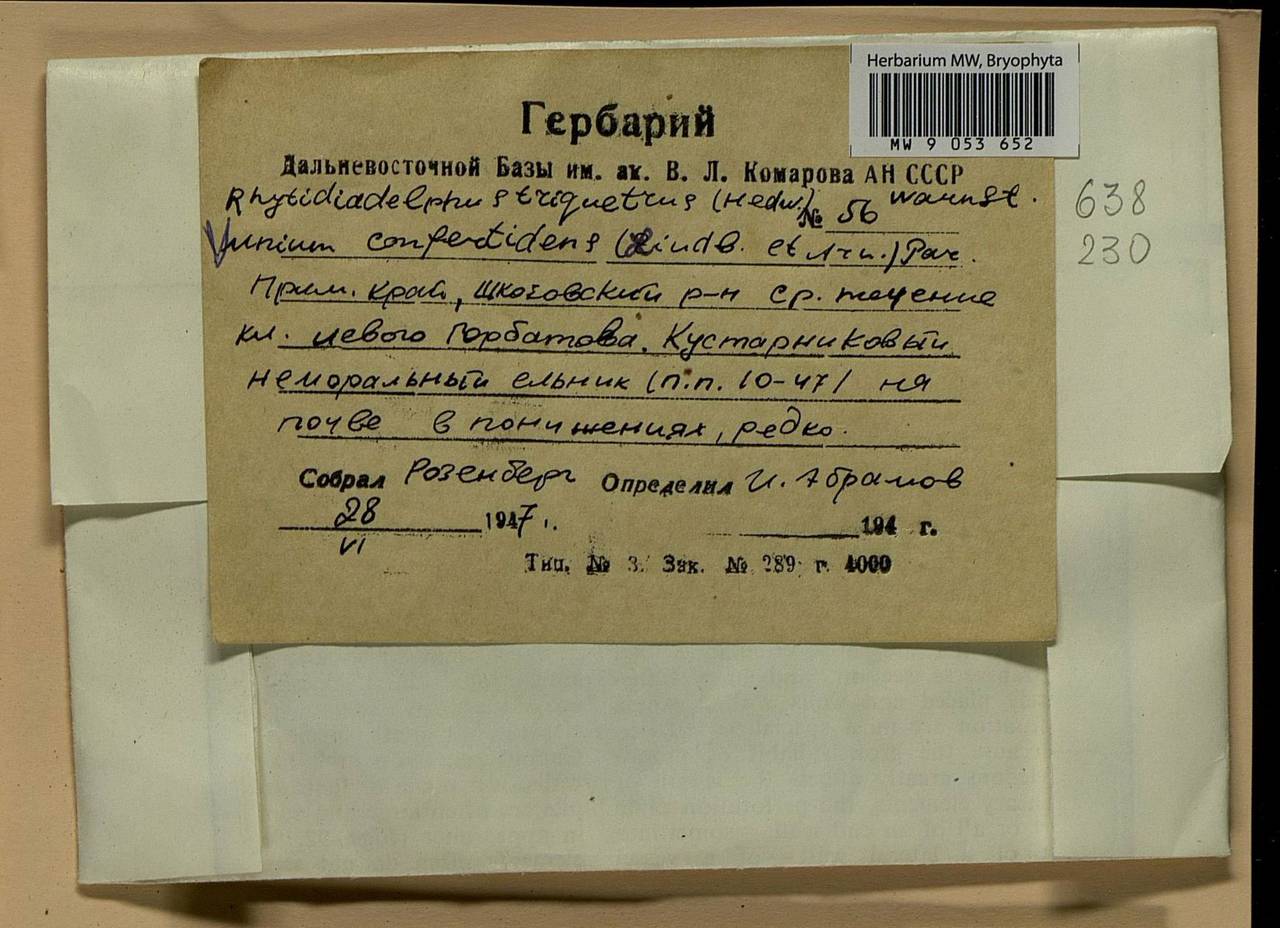 Herbarium MW, Bryophyta
MW 9 053 652
Гербарий
Дальневосточной Базы им. ак. В. Л. Комарова АН СССР
Rhytidiadelphus triquetrus (Hedw.) Warnst.
№ 56
638
Mnium confertidens (Lindb. et Arn.) Par.
230
Прим. край, Шкотовский р-н ср. течение
кл. Левого Горбатова. Кустарниковый
неморальный ельник (п.п. 10-47) на
почве в понижениях, редко.
Собрал Розенберг Определил И. Абрамов
28 1947 г.
VI
194 г.
Тип. № 3. Зак. № 289 г. 4000